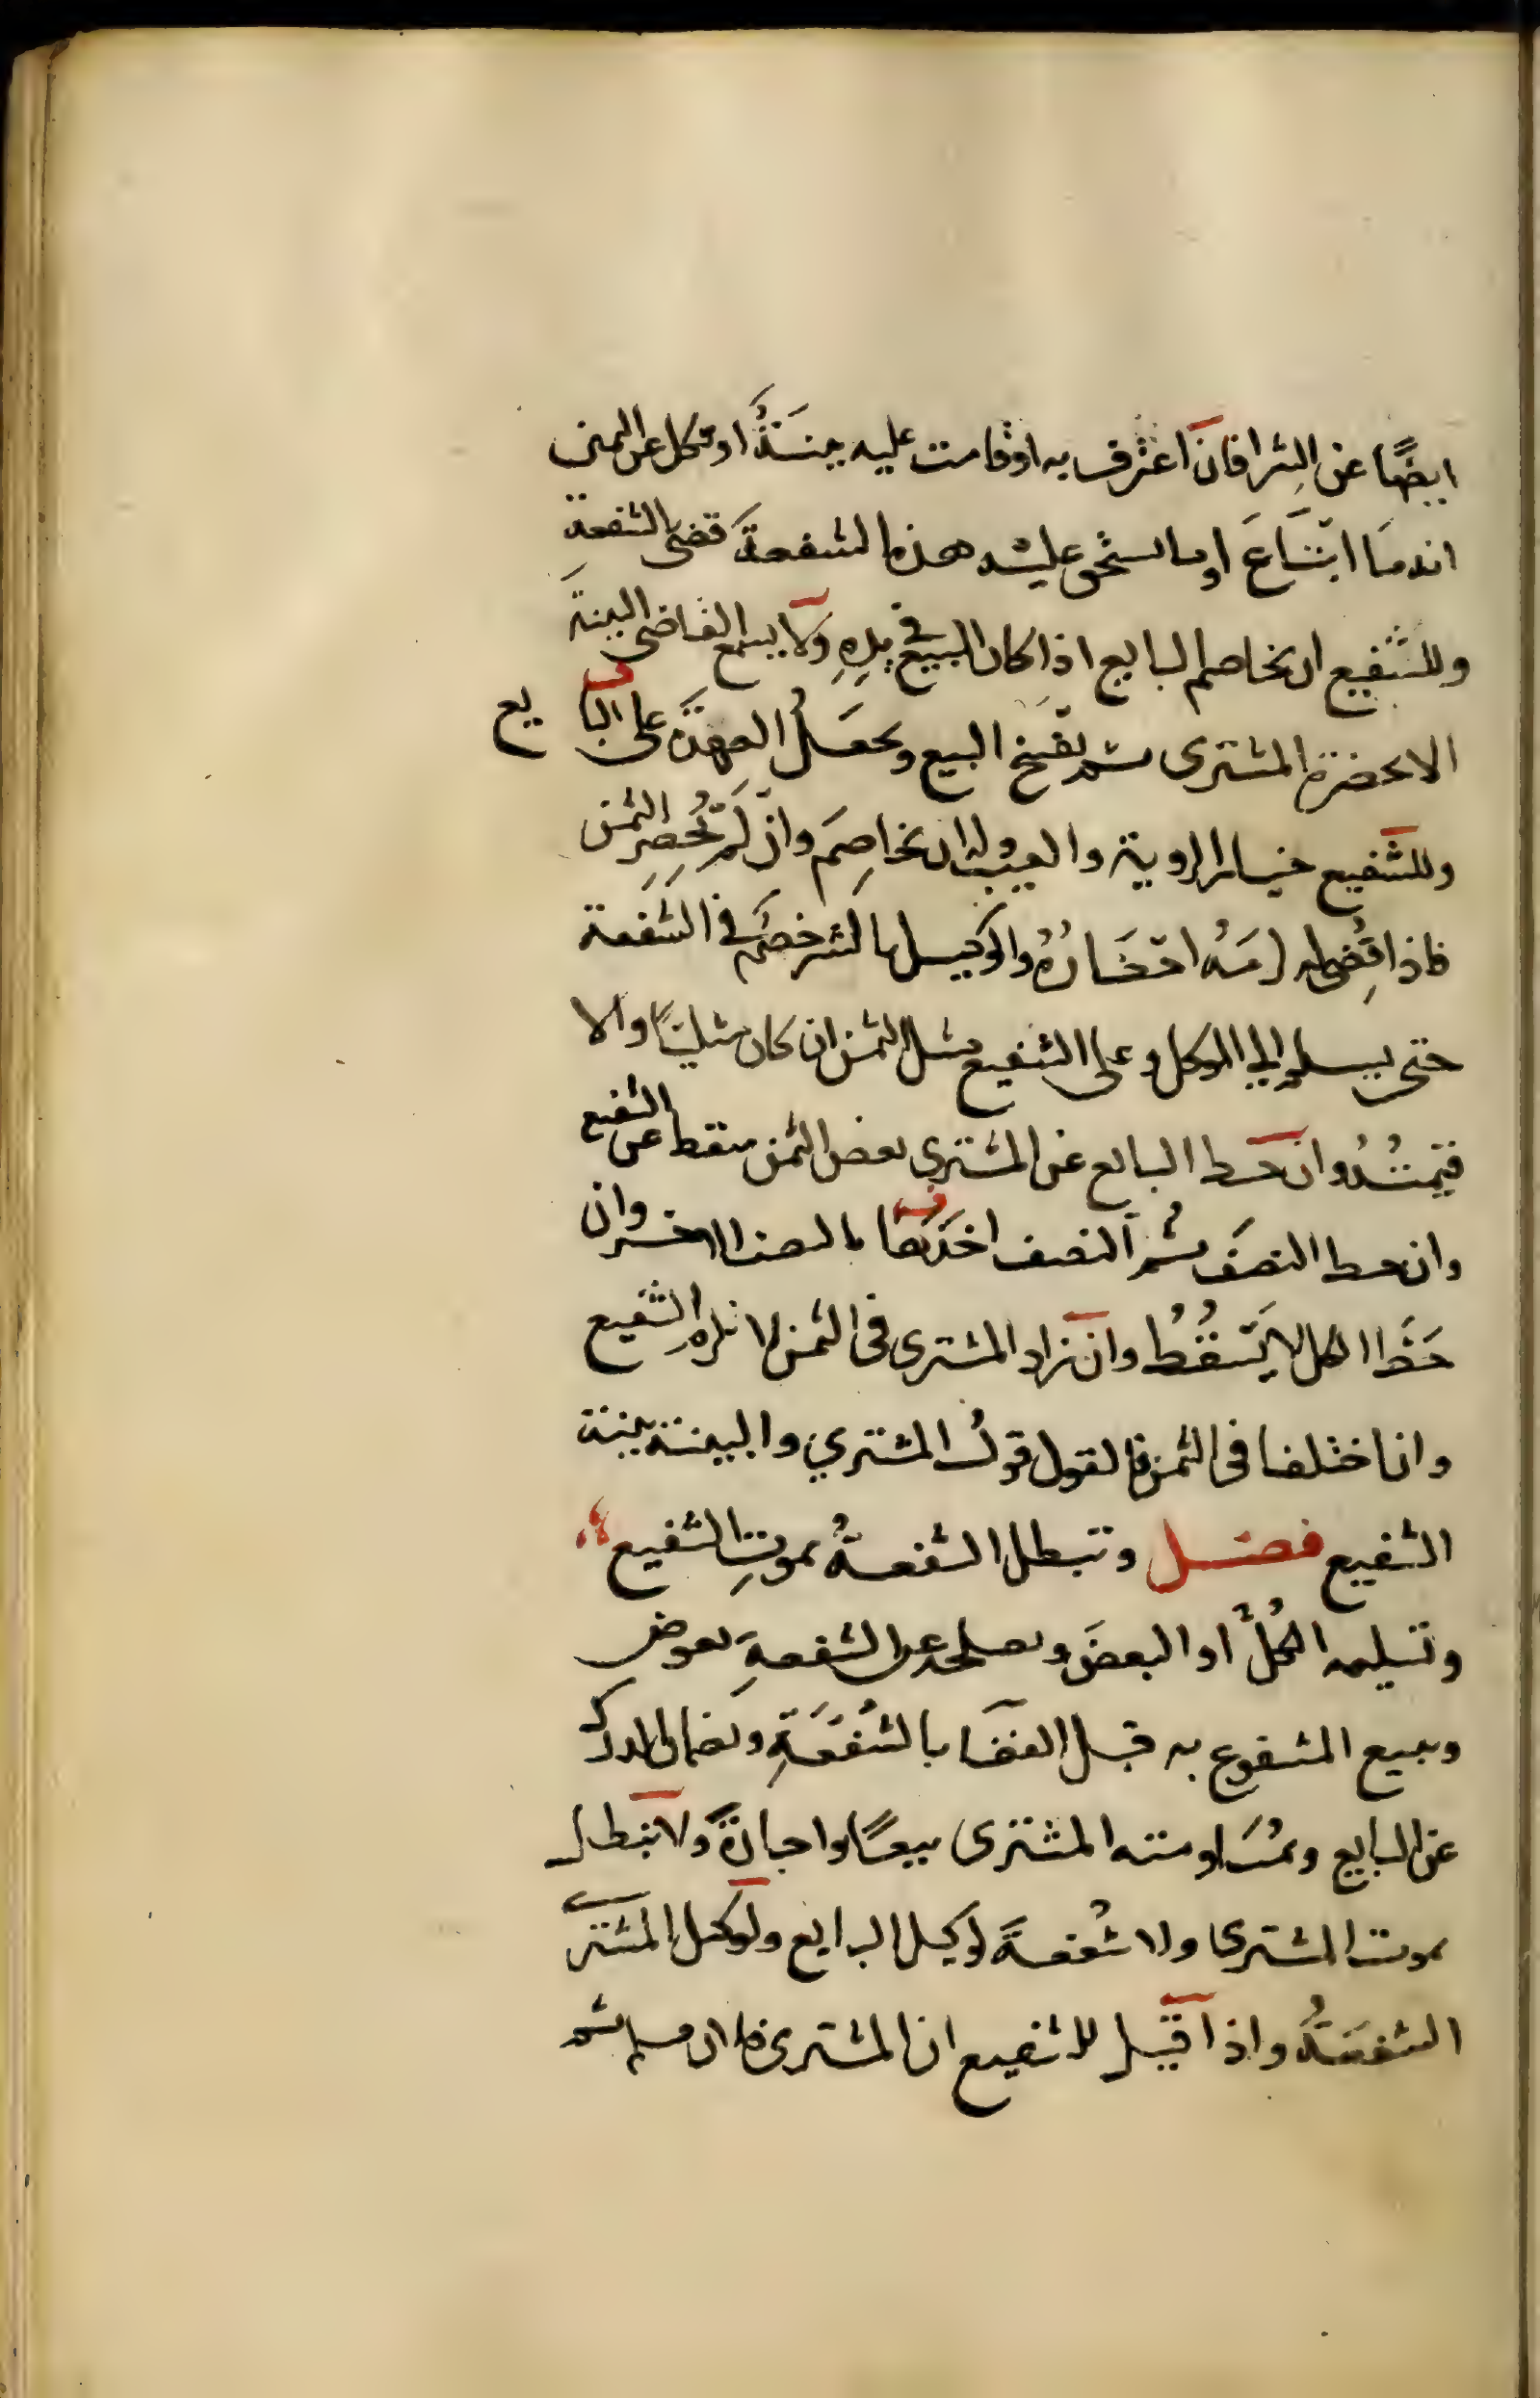 ايضًا عن الشرا فان اعترف به اوقامت عليه بينةٌ او نكل عن اليمين
انه ما ابتاعَ او ما يستحق عليه هذه الشفعةَ قضى بالشفعةِ
وللشفيع ان يخاصم البايع اذا كان المبيع في يدِهِ ولا يسمع القاضى البينة
الا بحضرة المشترى ثم يفسخ البيع ويجعلُ العهدةَ على البا يع
وللشفيع خيار الروية والعيب وله ان يخاصِمَ وان لم يُحضِرِ الثمن
فاذا قُضِى له لزمَهُ احضارُهُ والوكيل بالشرا خصمٌ فى الشفعة
حتى يسلم الى الموكل وعلى الشفيع مثل الثمن ان كان مثليًا والا
قيمتُهُ وان حط البايع عن المشتري بعض الثمن سقط عن الشفيع
وان حط النصفَ ثم النصف اخذها بالنصف الاخير وان
حَطَّ الكل لا يَسقُطُ وان زاد المشترى فى الثمن لا تلزم الشفيع
وان اختلفا فى الثمن فالقول قولُ المشتري والبينة بينة
الشفيع فصل وتبطل الشفعةُ بموتِ الشفيع
وتسليمه الكُلَّ او البعضَ وبصلحه عن الشفعةِ بعوض
وببيع المشفوع به قبل القضا بالشُفعَةِ وبضمان الدرك
عن البايع وبمُسَاومته المشترى بيعًا واجارةً ولا تبطل
بموت المشترى ولا شُفعةَ لوكيل البايع ولوكيل المشترى
الشفعَةُ واذا قيل للشفيع ان المشترى فلان فسلم ثم